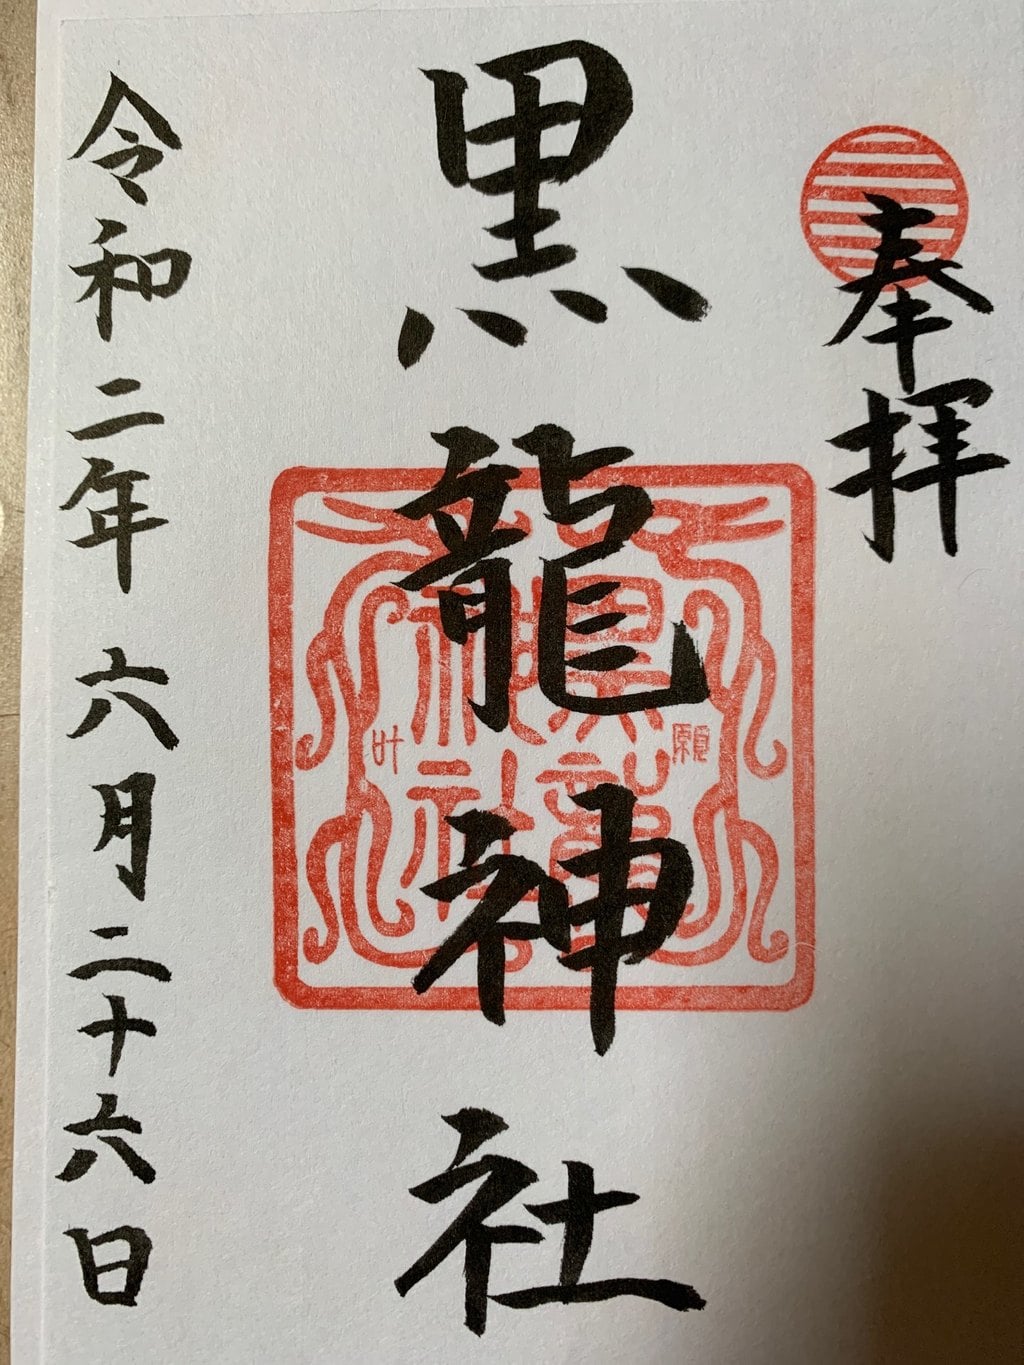 奉拝
黒龍神社
黒龍
神社
願
叶
令和二年六月二十六日